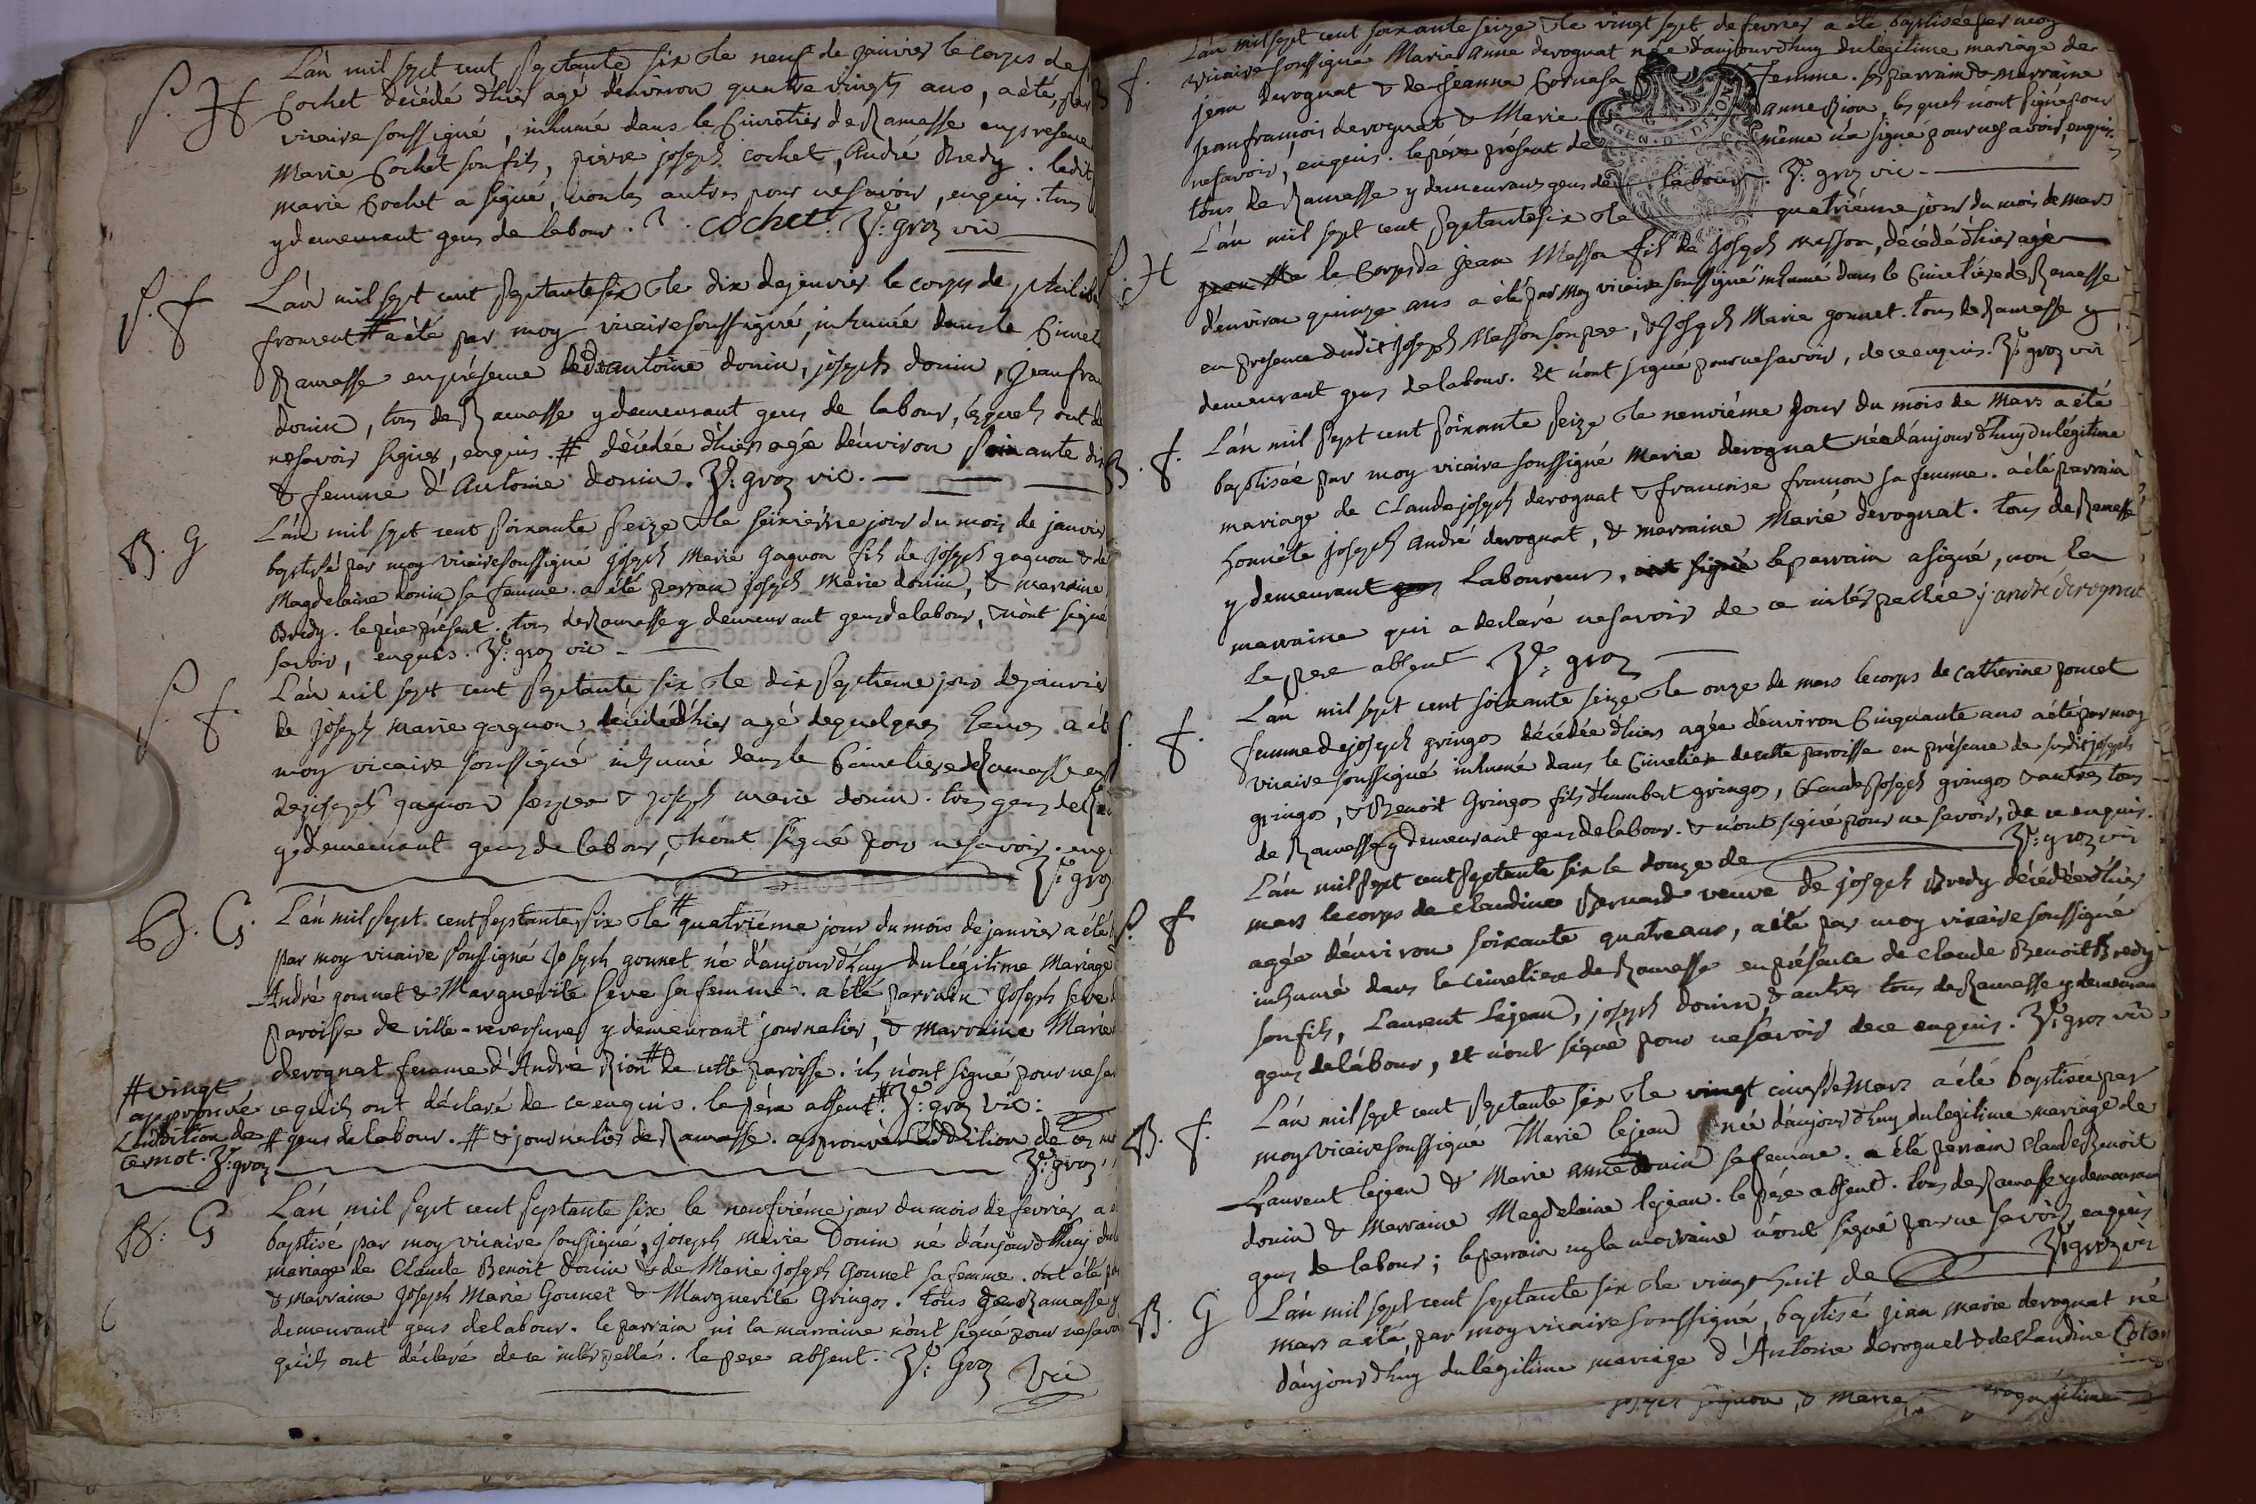 L'án mil sept cent septante six & le neuf de janvier le corps de
S. H Cochet décédé d'hier agé d'environ quatre vingts ans, a été, par
vicaire soussigné, inhumé dans le Cimetier de Ramasse en presence
Marie Cochet son fils, pierre joseph cochet, André Bredy. ledit
marie Cochet a signé, non les autres pour ne savoir, enquis. tous
y demeurant gens de labour. Cochet. gros vic
S. f L'án mil sept cent septante six & le dix de jenvier le corps de philib
froment # a été par moy vicaire soussigné, inhumée dans le Cimet
Ramasse en présence d'antoine donin, joseph donin, jean fra
donin, tous de Ramasse y demeurant gens de labour, lesquels ont
ne savoir signer, enquis. # décédée d'hier agée d'environ soixante dix
& femme d'Antoine donin. gros vic.
B. G L'án mil sept cent soixante seize & le seizième jour du mois de janvier
baptisé par moy vicaire soussigné joseph Marie gagnon fils de joseph gagnon & de
Magdelaine donin sa femme. a été parrain joseph Marie donin, & marraine
Bredy. le père présent. tous de Ramasse y demeurant gens de labour, & n'ont signé
savoir, enquis. gros vic
S. f. L'án mil sept cent septante six & le dix septieme jour de janvier
de joseph marie gagnon décédé d'hier agé de quelques a été
moy vicaire soussigné inhumé dans le Cimetiere de Ramasse en
de joseph gagnon & joseph marie donin. tous gens de
y demeurant gens de labour, & n'ont signé pour ne savoir. enq
gros
B. G. L'án mil sept cent septante six & le # quatriéme jour du mois de janvier a été
par moy vicaire soussigné Joseph gonnet né d'aujourd'huy du légitime Mariage
André gonnet & Marguerite seve sa femme. a été parrain Joseph seve
paroisse de ville-reversure y demeurant journalier, & marraine Marie
derognat femme d'André Rion # de cette paroisse. ils n'ont signé pour ne sa
# vingt
approuvé
l'addition de
ce mot. gros
ce qu'ils ont déclaré de ce enquis. le père absent. # gros vic:
# gens de labour. # & journalier de Ramasse. approuvé l'addition de ces mo
gros
B: G L'án mil sept cent septante six le neufvième jour du mois de fevrier a é
baptisé par moy vicaire soussigné, joseph Marie Donin né d'aujourd'huy du
mariage de Claude Benoit donin & de Marie joseph Gonnet sa femme. ont été pa
& marraine Joseph Marie Gonnet & Marguerite Gringoz. tous de Ramasse y
demeurant gens de labour. le parrain ni la marraine n'ont signé pour ne savoi
qu'ils ont déclaré de ce interpellés. le pere absent. Groz
Vic
L'án mil sept cent soixante seize & le vingt sept de fevrier a été baptisée par moy
f. vicaire soussigné Marie Anne derognat née d'aujourd'huy du légitime mariage de
jean derognat & de Jeanne femme. ses parrain & marraine
jean françois derognat & Marie anne Rion, lesquels n'ont signé pour
ne savoir, enquis. le père présent de même n'a signé pour ne savoir, enquis.
tous de Ramasse y demeurans gens de labour. groz vic
L'án mil sept cent septante six & le quatriéme jour du mois de mars
S. H le Corps de jean Masson fils de Joseph masson, décédé d'hier agé
d'environ quinze ans a été par moy vicaire soussigné inhumé dans le Cimetière de Ramasse
en presence dudit Joseph Masson son pere, & Joseph Marie gonnet. tous de Ramasse y
demeurant gens de labour. Et n'ont signé pour ne savoir, de ce enquis. groz vic
B. f. L'án mil sept cent soixante seize & le neuviéme Jour du mois de Mars a été
baptisée par moy vicaire soussigné Marie derognat née d'aujourd'huy du légitime
mariage de Claude joseph derognat & francoise françon sa femme. a été parrain
honnête joseph André derognat, & marraine Marie derognat. tous de Ramasse
y demeurant Laboureurs, le parrain a signé, non la
marraine qui a déclaré ne savoir de ce interpellée j andré derognat
Le pere absent groz
f. L'án mil sept cent soixante seize & le onze de mars le corps de Catherine poncet
femme de joseph gringoz décédée d'hier agée d'environ Cinquante ans a été par moy
vicaire soussigné inhumé dans le Cimetière de cette paroisse en présence de susdit joseph
gringoz, & Benoit Gringoz fils d'humbert gringoz, Claude Joseph gringoz & autres tous
de Ramasse y demeurant gens de labour. & n'ont signé pour ne savoir, de ce enquis.
groz vic
S. f L'án mil sept cent septante six le douze de
mars le corps de Claudine Bernard veuve de joseph Bredy décédée d'hier
agée d'environ soixante quatre ans, a été par moy vicaire soussigné
inhumé dans le cimetiere de Ramasse en présence de Claude Benoit Bredy
son fils, Laurent Lejean, joseph donin, & autres tous de Ramasse y demeurant
gens de labour, et n'ont signé pour ne savoir de ce enquis. groz vic
B. f. L'án mil sept cent septante six & le vingt cinq de Mars a été baptisée par
moy vicaire soussigné Marie lejean née d'aujourd'huy du légitime mariage de
Laurent lejean & Marie anne donin sa femme. a été parrain Claude Benoit
donin & Marraine Magdelaine lejean. le père absent. tous de Ramasse y demeurans
gens de labour; le parrain ny la marraine n'ont signé pour ne savoir, enquis
groz vic
B. G L'án mil sept cent septante six & le vingt huit de
mars a été, par moy vicaire soussigné, baptisé jean Marie derognat né
d'aujourd'huy du légitime mariage d'Antoine derognat & de Claudine